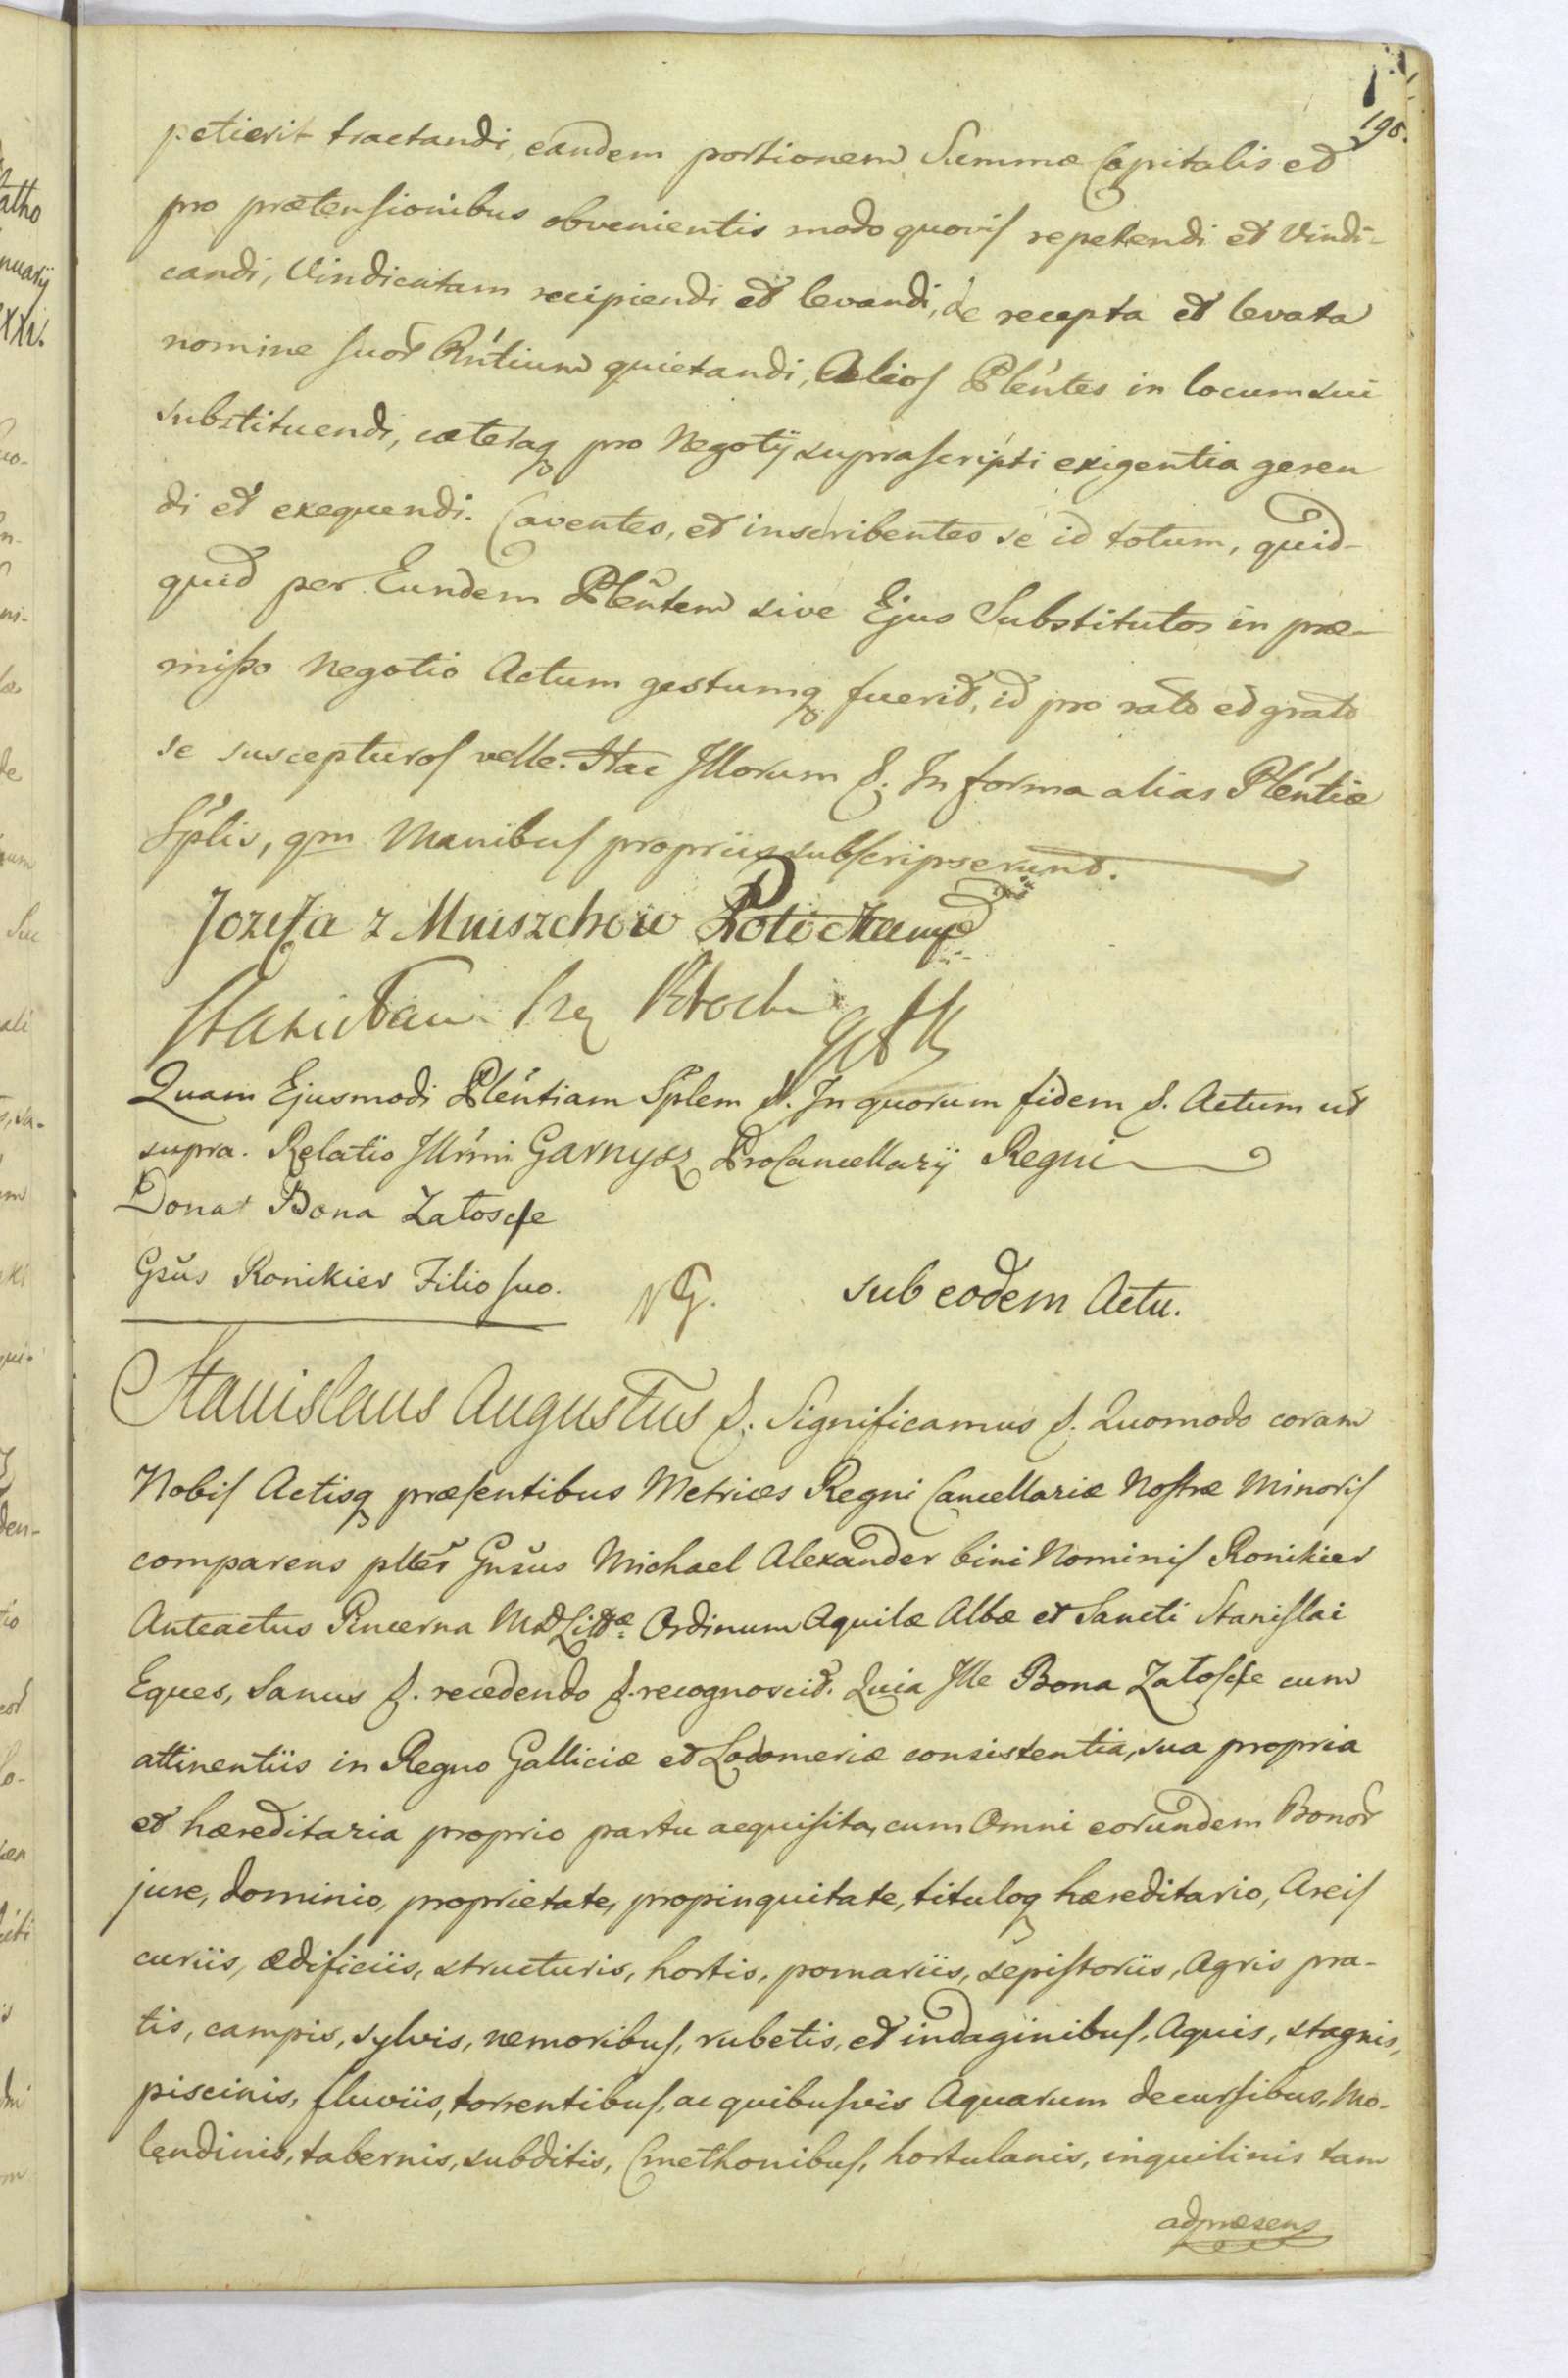 198.
petierit tractandi, eandem portionem Summæ Capitalis et
pro prætensionibus obvenientis modo quovis repetendi et Vindi-
candi, Vindicatam recipiendi et levandi, de recepta et levata
nomine suor Rńtium quietandi, Alios Pleńtes in locum sui
substituendi, cæteraq pro Negotij suprascripti exigentia geren
di et exequendi. Caventes, et inscribentes se id totum, quid-
quid per Eundem Pleńtem sive Ejus Substitutos in præ-
misso Negotio Actum gestumq fuerit, id pro rato et grato
se suscepturos velle. Hac Illorum &. In forma alias Pleńtiæ
Splis, qm Manibus propriis subscripserunt.
Jozefa z Mniszchow Potocka
Stanisław Potocki
Quam Ejusmodi Pleńtiam Splem &. In quorum fidem &. Actum ut
supra. Relatio Illrmi Garnysz ProCancellarij Regni
Donat Bona Zatoscie
Gsus Ronikier Filio suo.
NG. sub eodem Actu.
Stanislaus Augustus &. Significamus &. Quomodo coram
Nobis Actisq præsentibus Metrices Regni Cancellariæ Nostræ Minoris
comparens plter Gnsus Michael Alexander bini Nominis Ronikier
Anteactus Pincerna MDLittæ Ordinum Aquilæ Albæ et Sancti Stanislai
Eques, Sanus &. recedendo &. recognovit. Quia Ille Bona Zatoscie cum
attinentiis in Regno Galliciæ et Lodomeriæ consistentia, sua propria
et hæreditaria proprio partu acquisita, cum Omni eorundem Bonor
jure, dominio, proprietate, propinquitate, tituloq hæreditario, Areis
curiis, ædificiis, structuris, hortis, pomariis, sepistoriis, Agris pra-
tis, campis, sylvis, nemoribus, rubetis, et indaginibus, Aquis, stagnis,
piscinis, fluviis, torrentibus, ac quibusvis Aquarum decursibus, Mo-
lendinis, tabernis, subditis, Cmethonibus, hortulanis, inquilinis tam
ad præsens